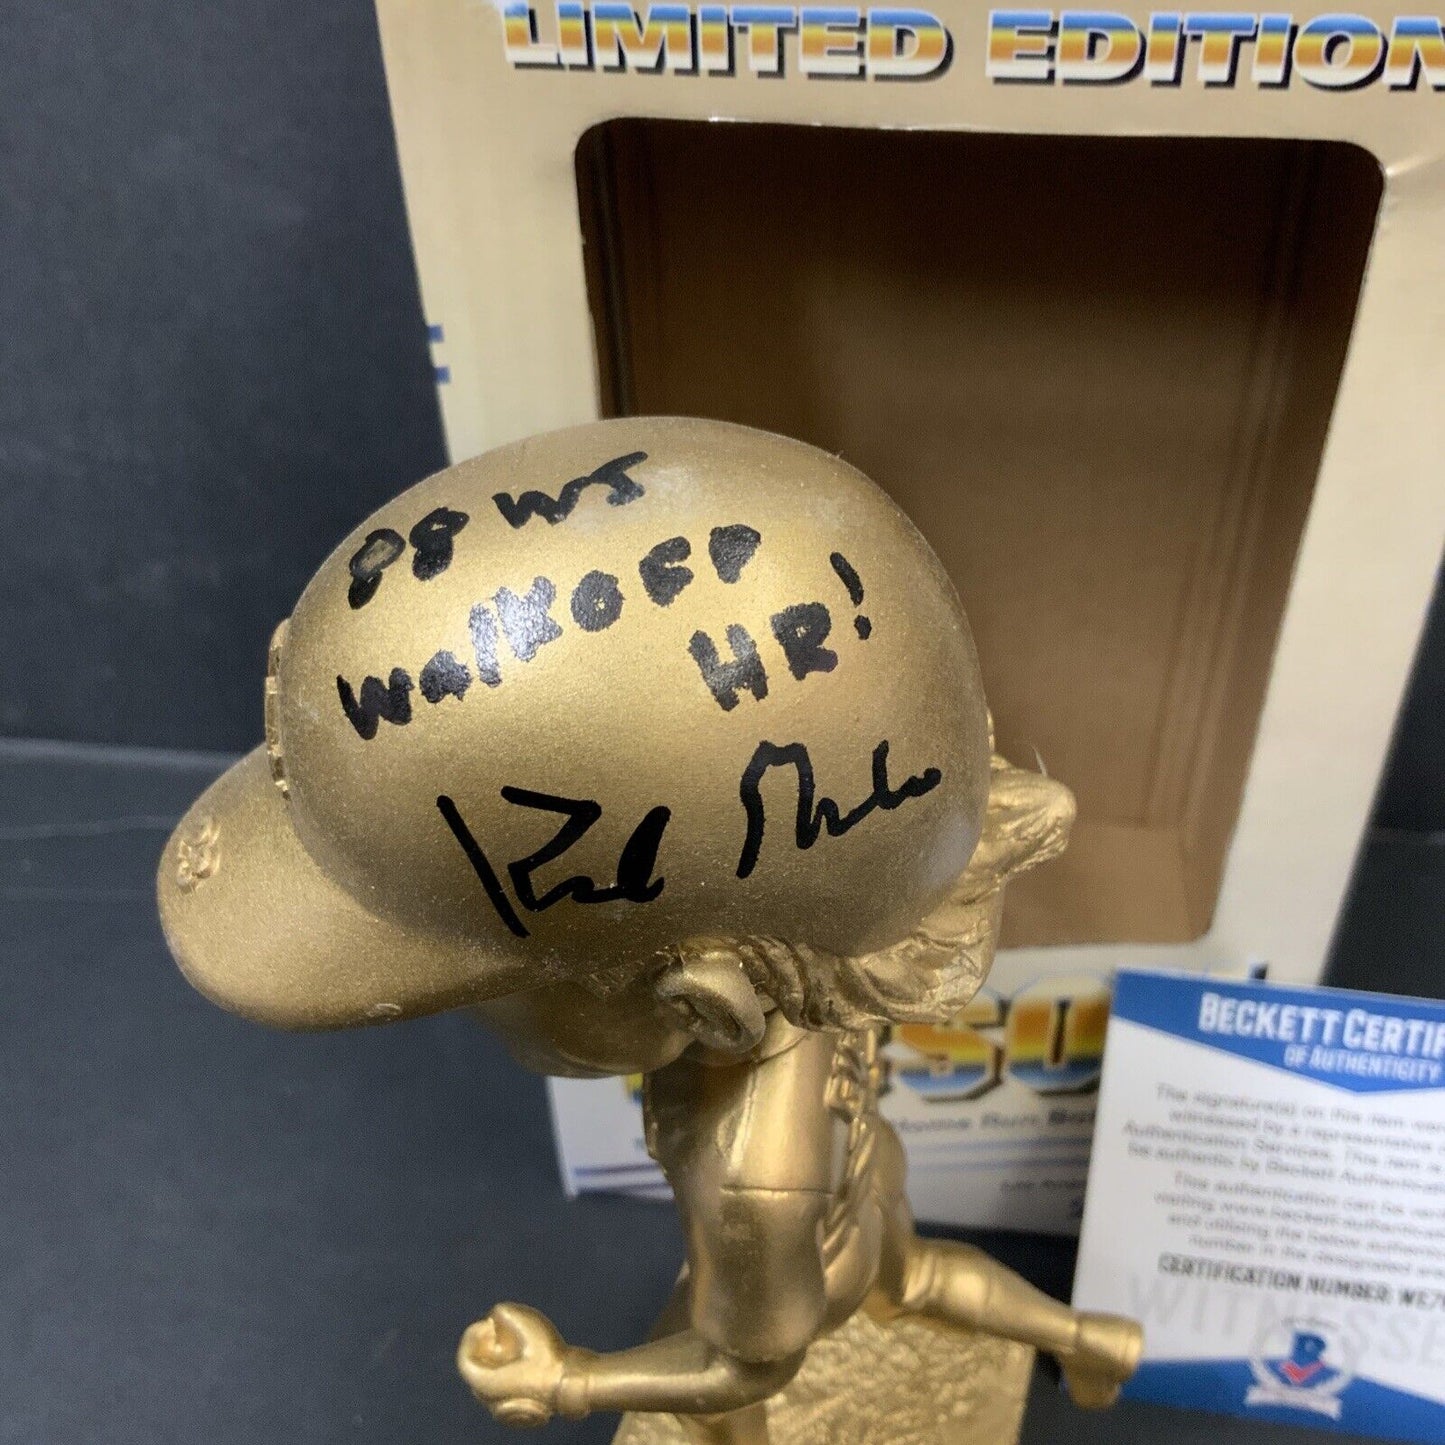 LIMITED EDITION
88 WS
WalkOFF
HR!
SO
Home Run, 
BECKETT CERTIF
OF AUTHENTICITY
The signature(s) on this item were
witnessed by a representative
Authentication Services. This item is
be authentic by Beckett Authentication
This authentication can be
visiting www.beckett-authentication
and utilizing the below
number in the designated area
CERTIFICATION NUMBER: WE7
WITNESSE
B